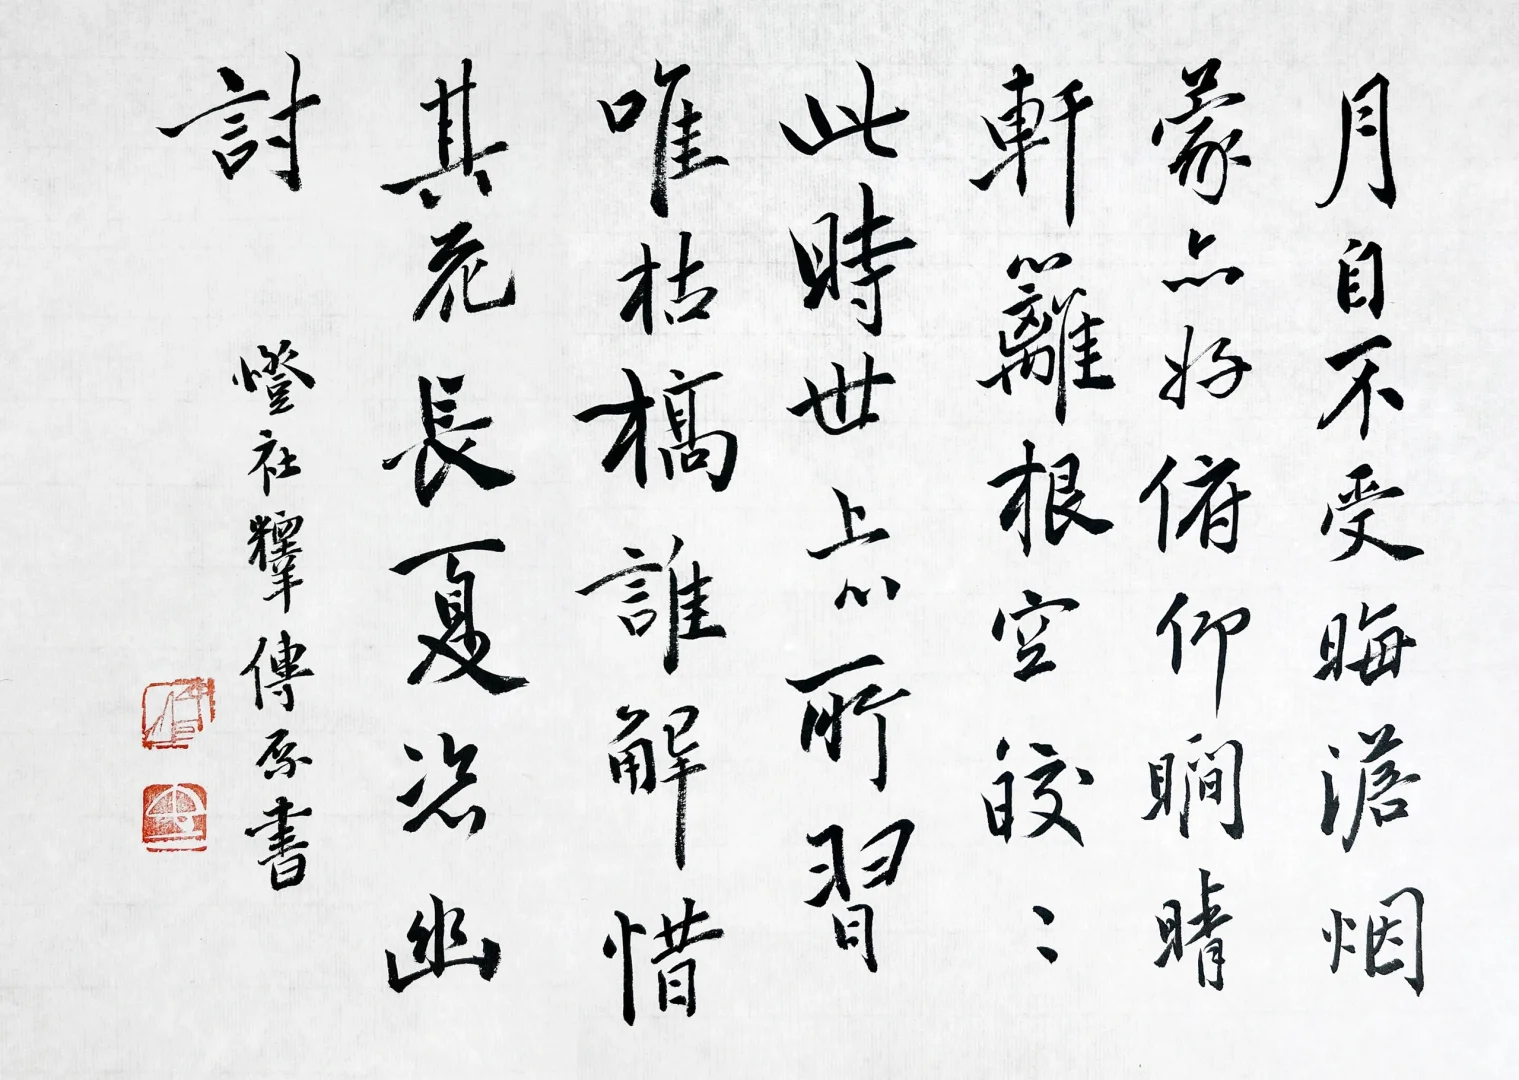 月自不受晦澹烟
蒙亦好俯仰瞯晴
軒籬根空皎〻
此時世上心所習
唯枯槁誰解惜
其花長夏恣幽
討
燈社釋傳書